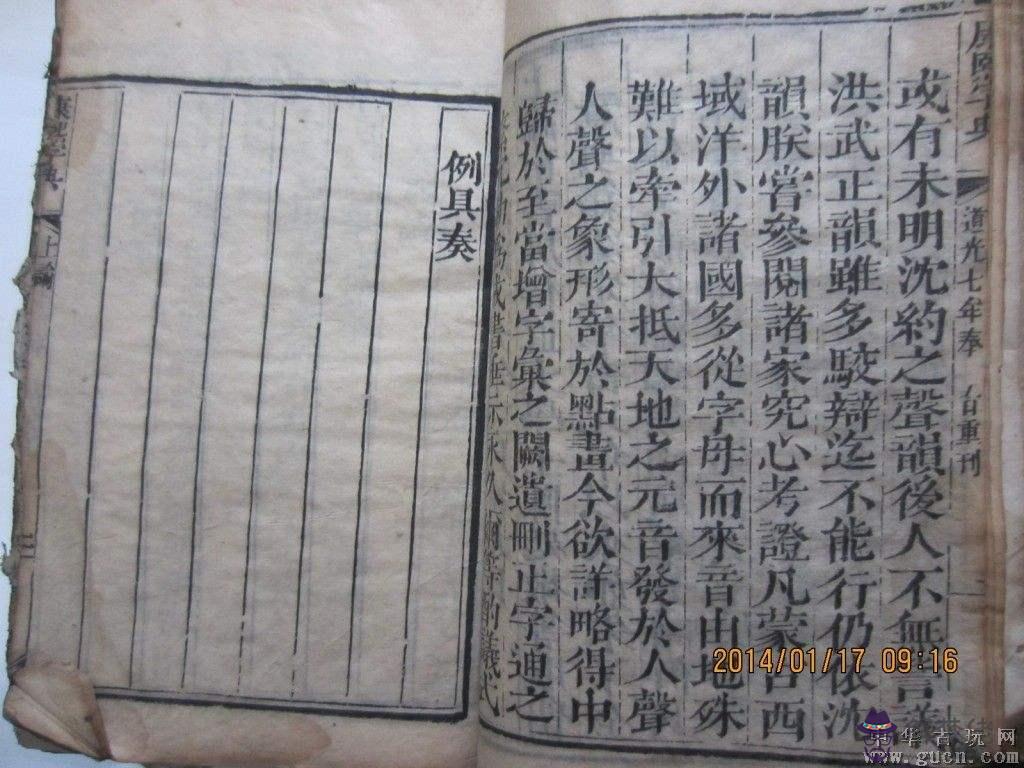 康熙字典 道光七年奉 旨重刊
或有未明沈約之聲韻後人不無言議
洪武正韻雖多駮辯迄不能行仍依沈
韻朕嘗參閱諸家究心考證凡蒙古西
域洋外諸國多從字母而來音由地殊
難以牽引大抵天地之元音發於人聲
人聲之象形寄於點畫今欲詳略得中
歸於至當增字彙之闕遺刪正字通之
酌議式
例具奏
康熙字典 上諭 二
2014/01/17 09:16
中华古玩网
www.gucn.com